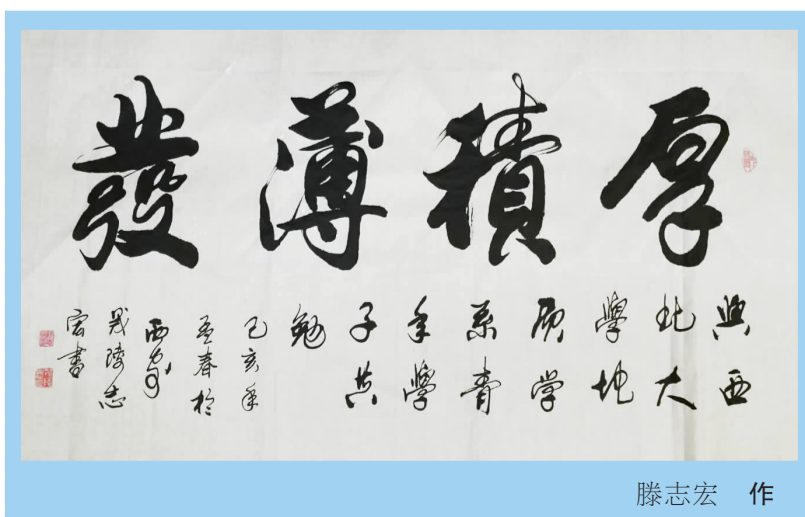 厚積薄發
與西
北大
學地
质学
系青
年學
子共
勉
己亥年
孟春於
西安
滕志
宏書
滕志宏 作